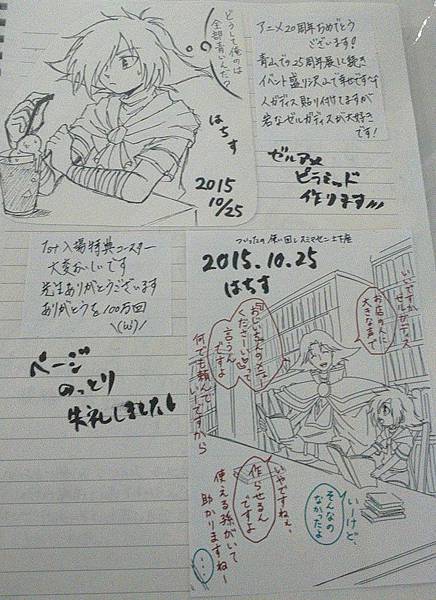 どうして俺のは
全部青いんだ?
はちす
2015
10/25
アニメ20周年おめでとう
ございます!
青山での25周年展に続き
イベント盛り沢山で幸せです
人がディス貼り付けてますが
岩なゼルガディスが大好き
です!
ピラミッド
作ります
1st入場特典コースター
大変おいしいです
先生ありがとうございます
ありがとうを100万回
\(ω)/
ページ
のっとり
失礼しました
ついったの使い回しスミマセン土下座
2015.10.25
はちす
いいですかゼルガディス
お店の人に
大きな声で
『おじいちゃんのメニュー
くださーい♡』って
言うん
ですよ
何でも頼んで
いーですから
いーけど、
そんなの
なかったよ
いやですねぇ、
作らせるん
ですよ
使える孫がいて
助かりますねー
…